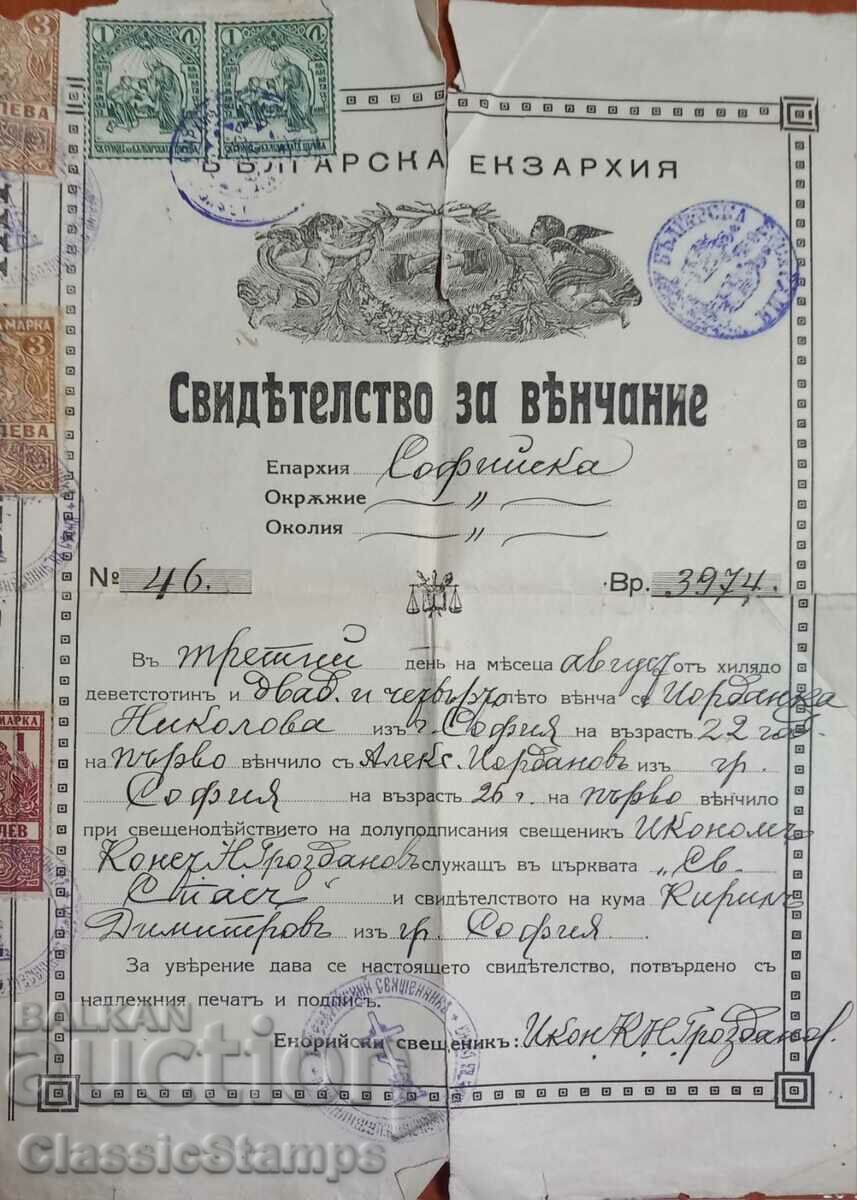 3
ЛЕВА
МАРКА
3
ЛЕВА
МАРКА
1
ЛЕВ
1 1
БЪЛГАРСКА ЕКЗАРХИЯ
БЪЛГАРСКА
Свидѣтелство за вѣнчание
Епархия Софийска
Окрѫжие — „ —
Околия — „ —
№ 46. Вр. 3974.
Въ третий день на мѣсеца август отъ хилядо
деветстотинъ и двад. и четвърто лѣто вѣнча се Йорданка
Николова изъ г. София на възрасть 22 год.
на първо вѣнчило съ Алекс. Йордановъ изъ гр.
София на възрасть 26 г. на първо вѣнчило
при свещенодѣйствието на долуподписания свещеникъ Икономъ
Конст. Н. Гроздановъ служащъ въ църквата „Св.
Спасъ" и свидѣтелството на кума Кирилъ
Димитровъ изъ гр. София.
За увѣрение дава се настоящето свидѣтелство, потвърдено съ
надлежния печатъ и подпись.
Енорийски свещеникъ: Икон. К. Н. Грозданов.
BALKAN
auction
ClassicStamps